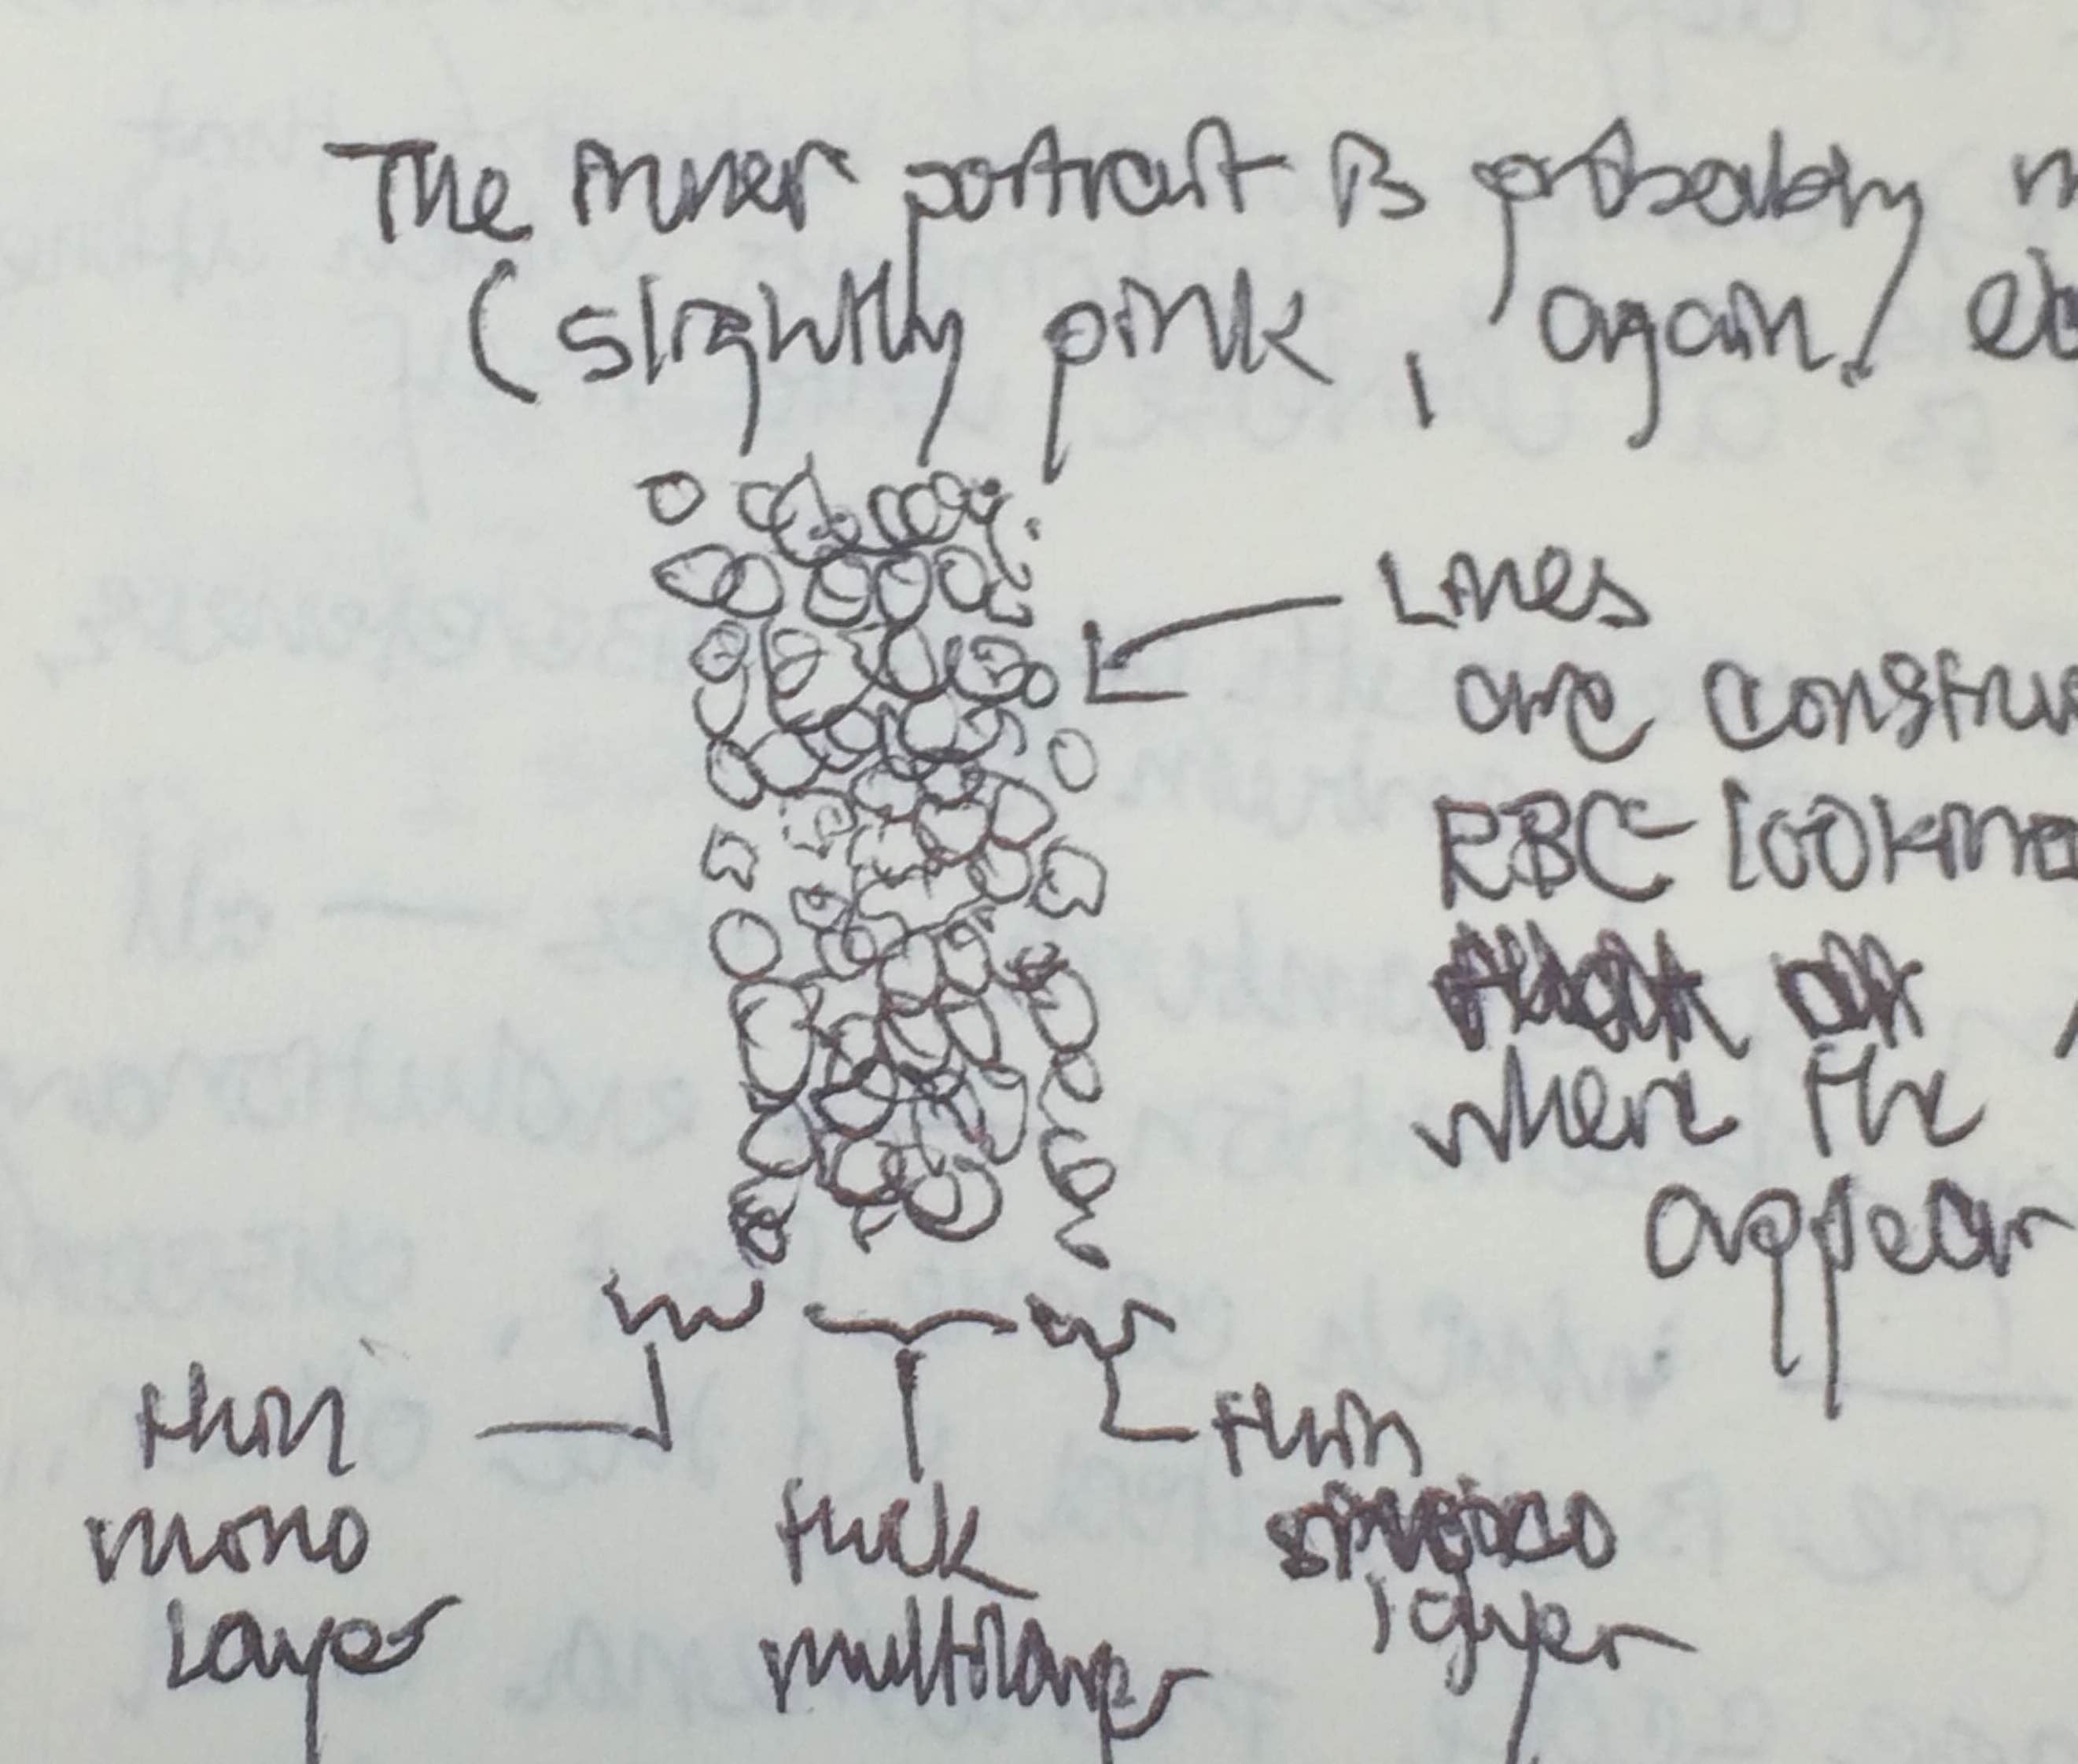 The inner portrait is probably
(slightly pink, again!
Lines
are constru
RBC-looking
where the
appear
thin
mono
layer
thick
multilayer
thin
layer